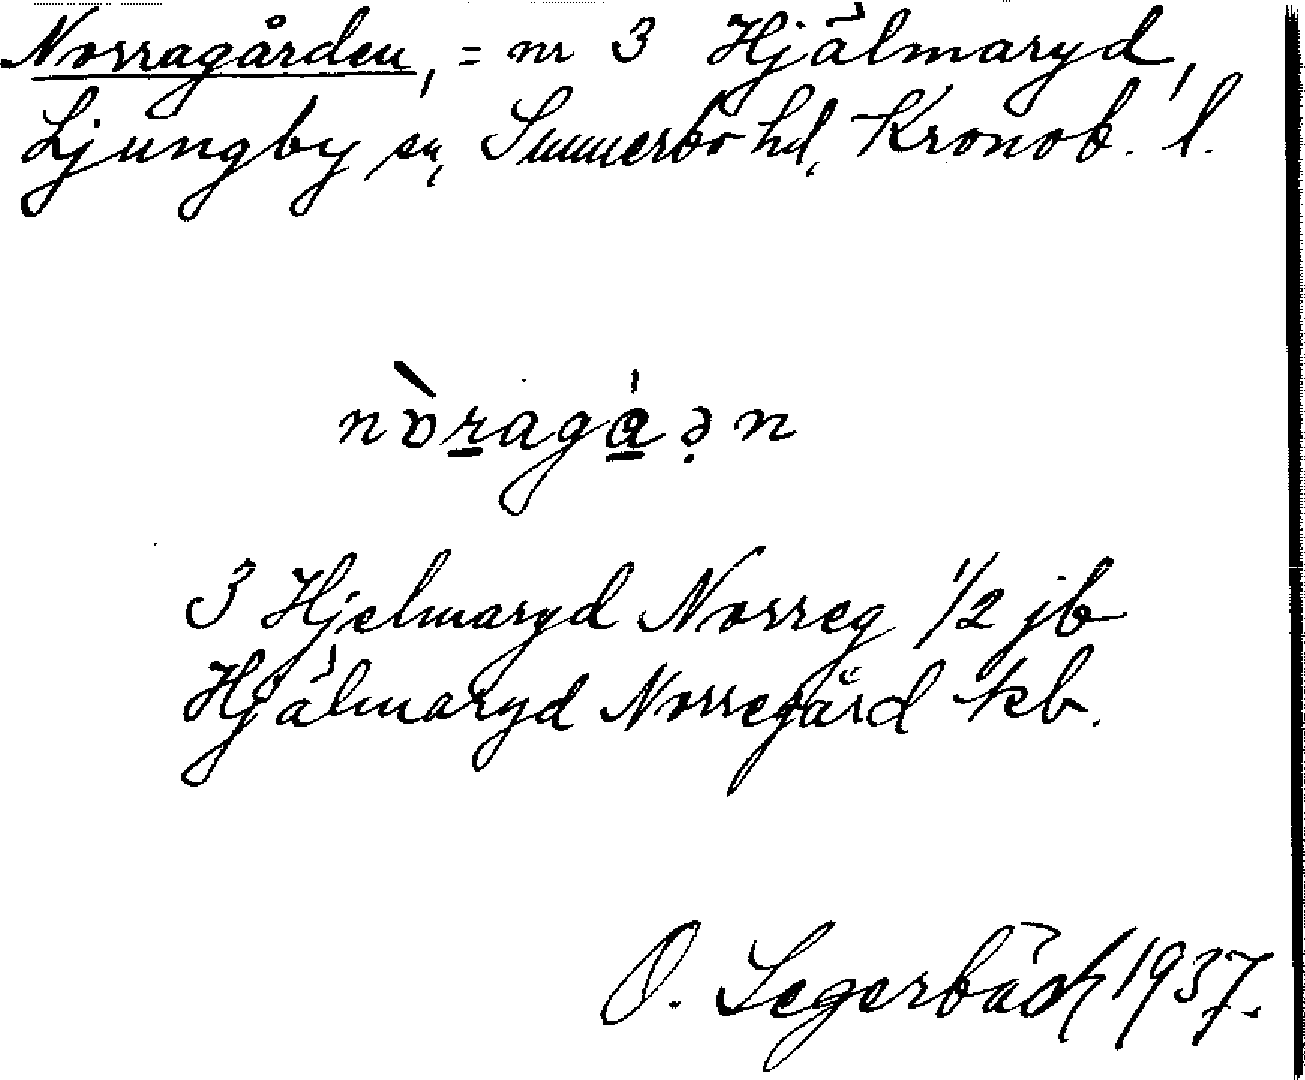 Norragården, = nr 3 Hjälmaryd,
Ljungby sn, Sunnerbo hd, Kronob. l.
3 Hjelmaryd Norreg 1/2 jb
Hjälmaryd Norregård kb.
O. Segerbäck 1937.